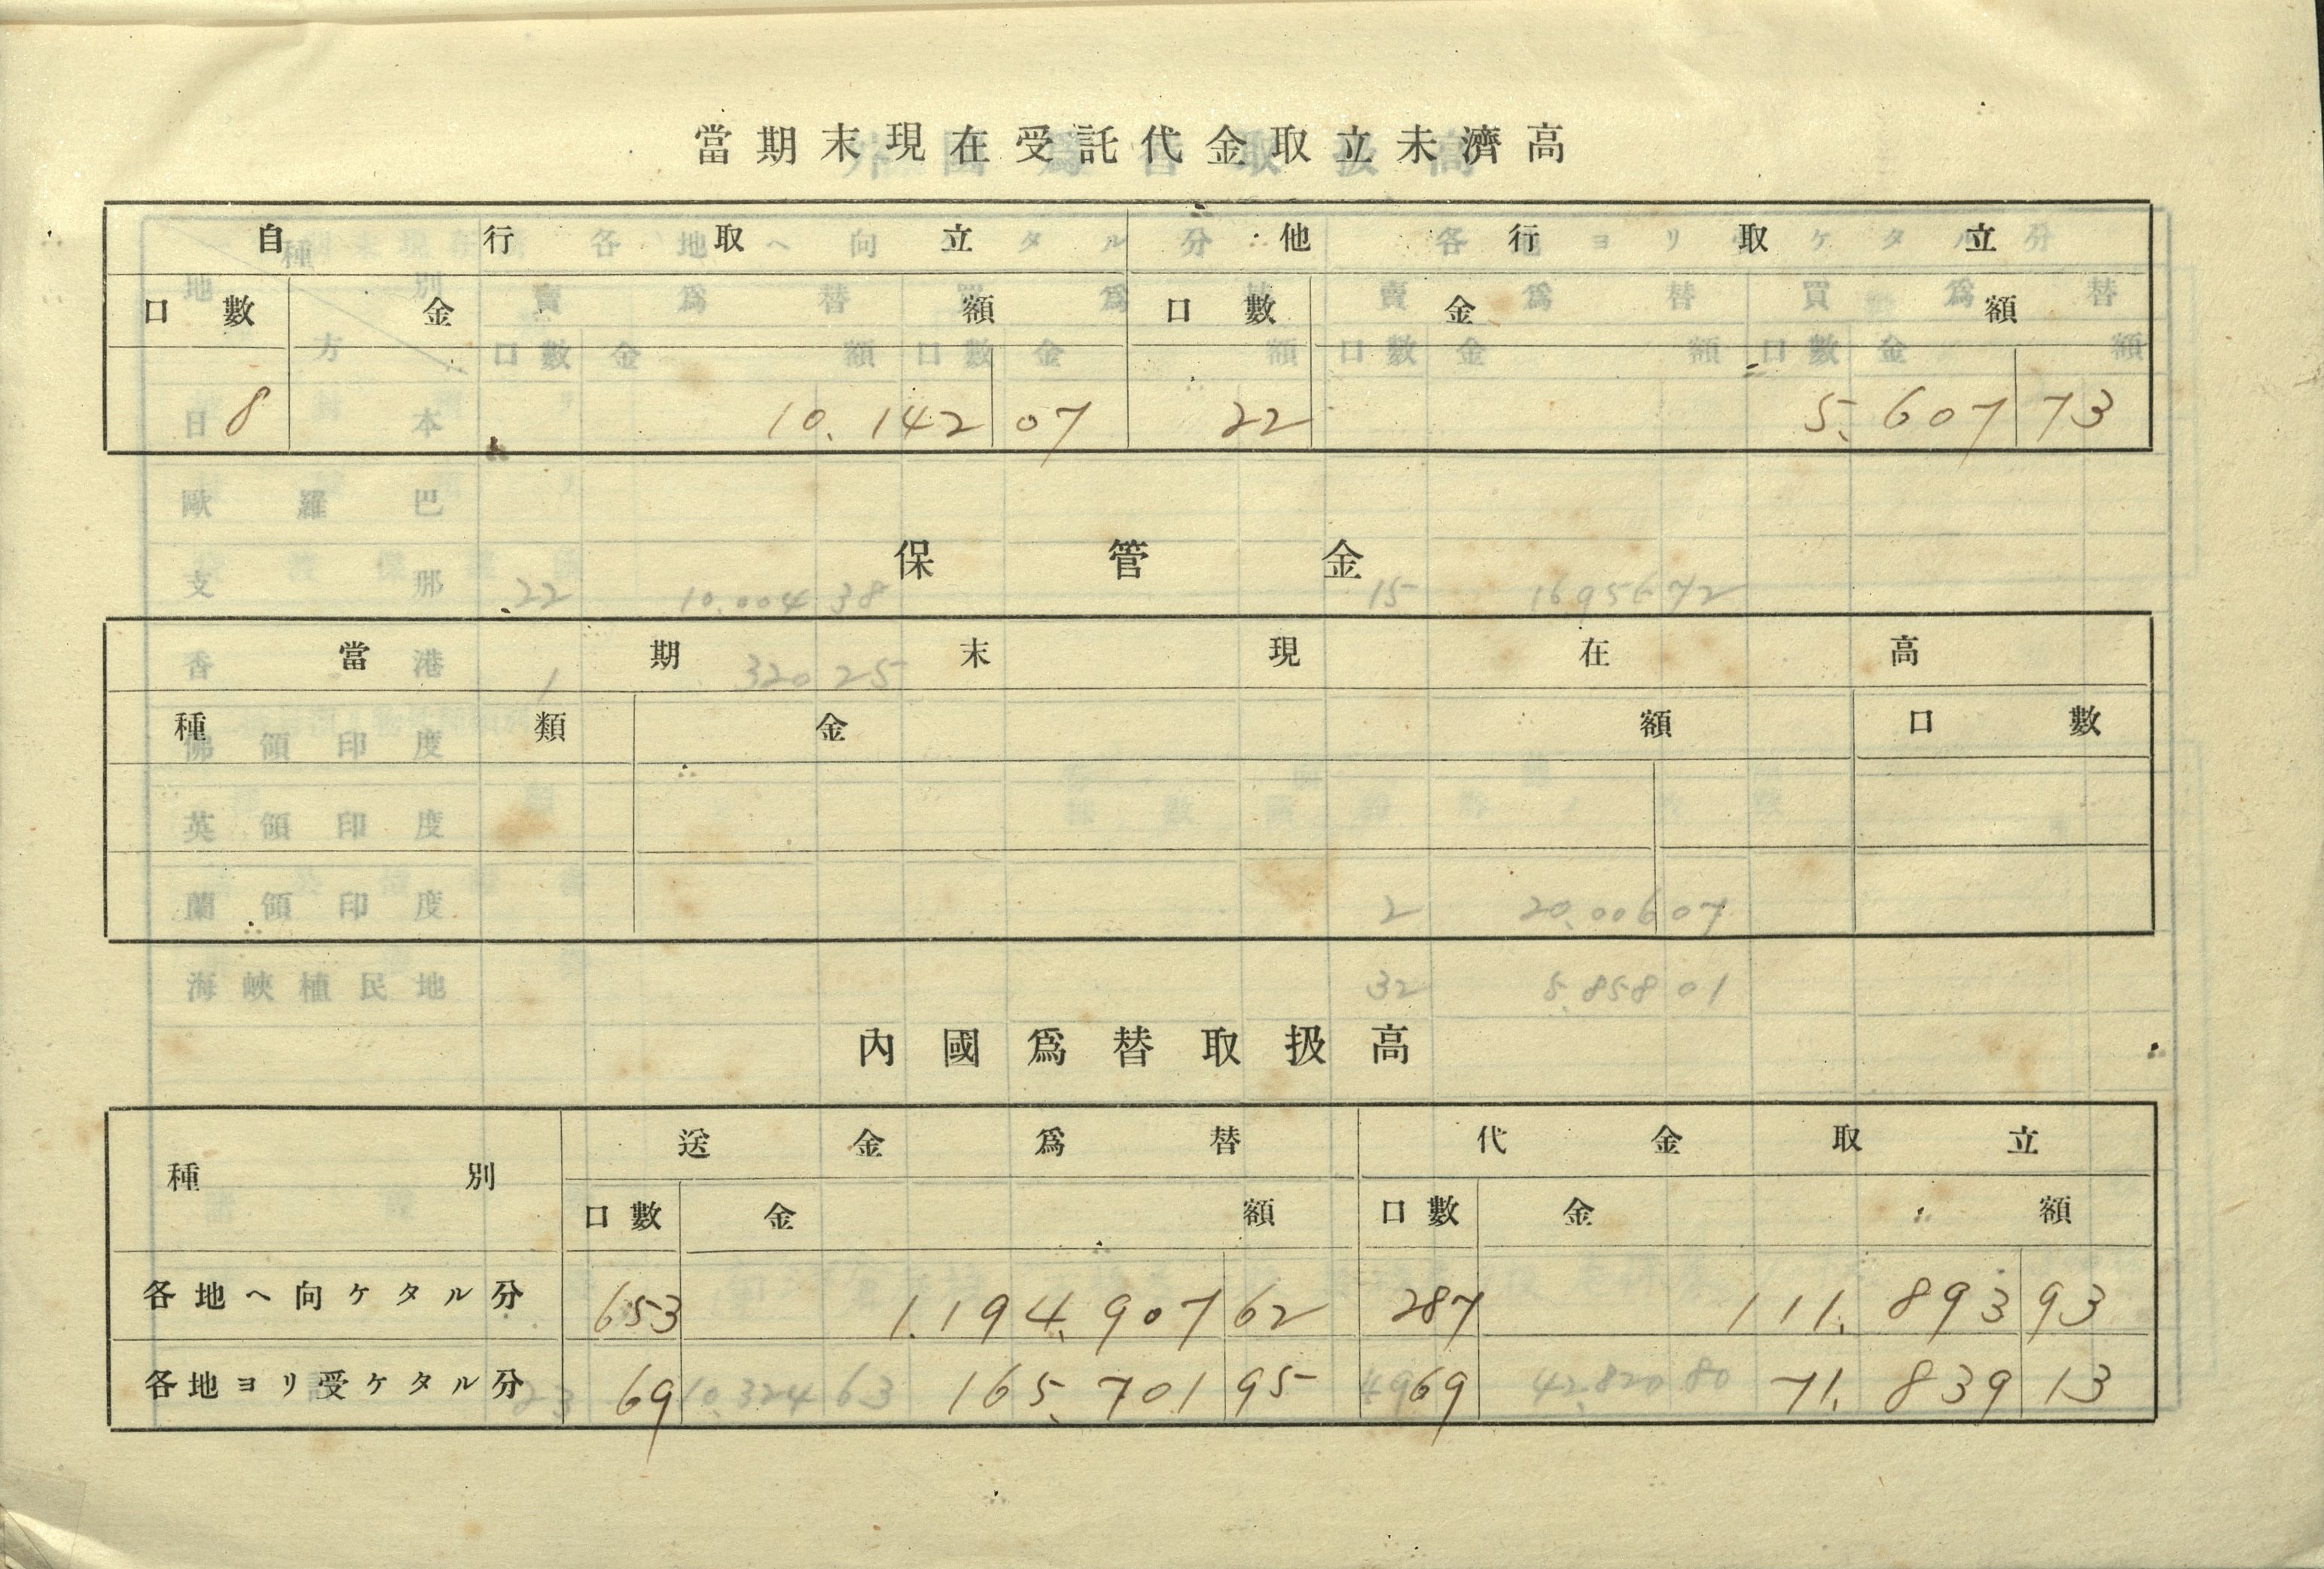 當期末現在受託代金取立未濟高
自行取立 他行取立
口數 金額 口數 金額
8 10.142 07 22 5.607 73
保管金
當期末現在高
種類 金額 口數
內國爲替取扱高
種別 送金爲替 代金取立
口數 金額 口數 金額
各地ヘ向ケタル分 653 1.194.907 62 287 111.893 93
各地ヨリ受ケタル分 69 165.701 95 69 71.839 13